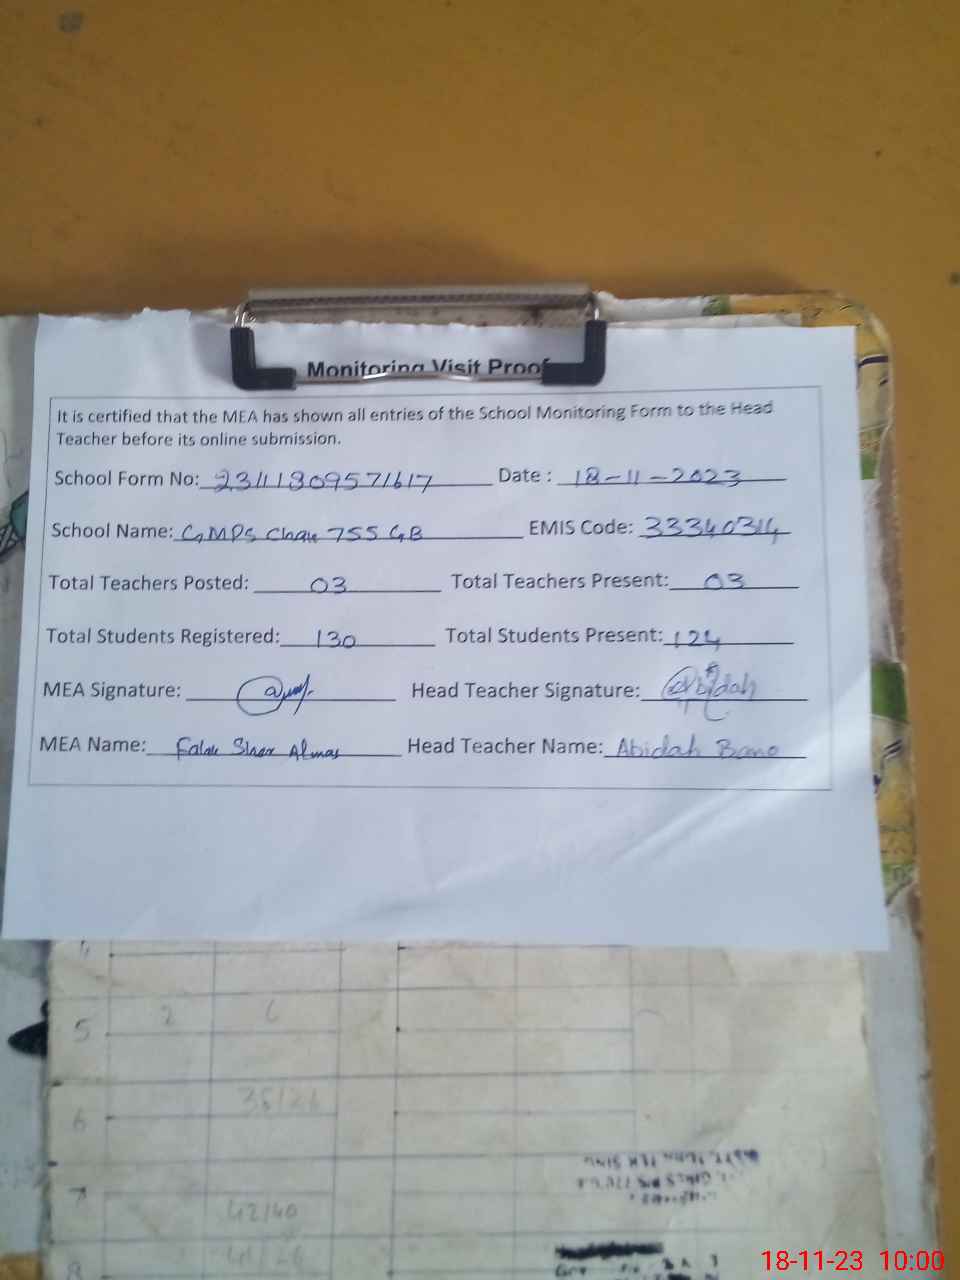 Monitoring Visit Proof
It is certified that the MEA has shown all entries of the School Monitoring Form to the Head
Teacher before its online submission.
School Form No: 23111809571617 Date : 18-11-2023
School Name: GMPS Chak 755 GB EMIS Code: 33340314
Total Teachers Posted: 03 Total Teachers Present: 03
Total Students Registered: 130 Total Students Present: 124
MEA Signature: Head Teacher Signature: Abidah
MEA Name: Sher Almas Head Teacher Name: Abidah Bano
5 2 6
6 36/26
7 42/40
8
18-11-23 10:00